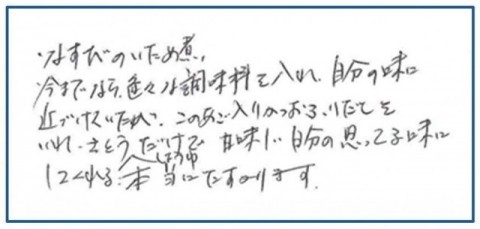 なすびのいため煮、
今までなら、色々な調味料を入れ、自分の味に
近づけていたが、このあご入りかつおふりだしを
いれ、さとう、しょうゆだけで 甘味が自分の思ってる味に
してくれる。本当にたすかります。